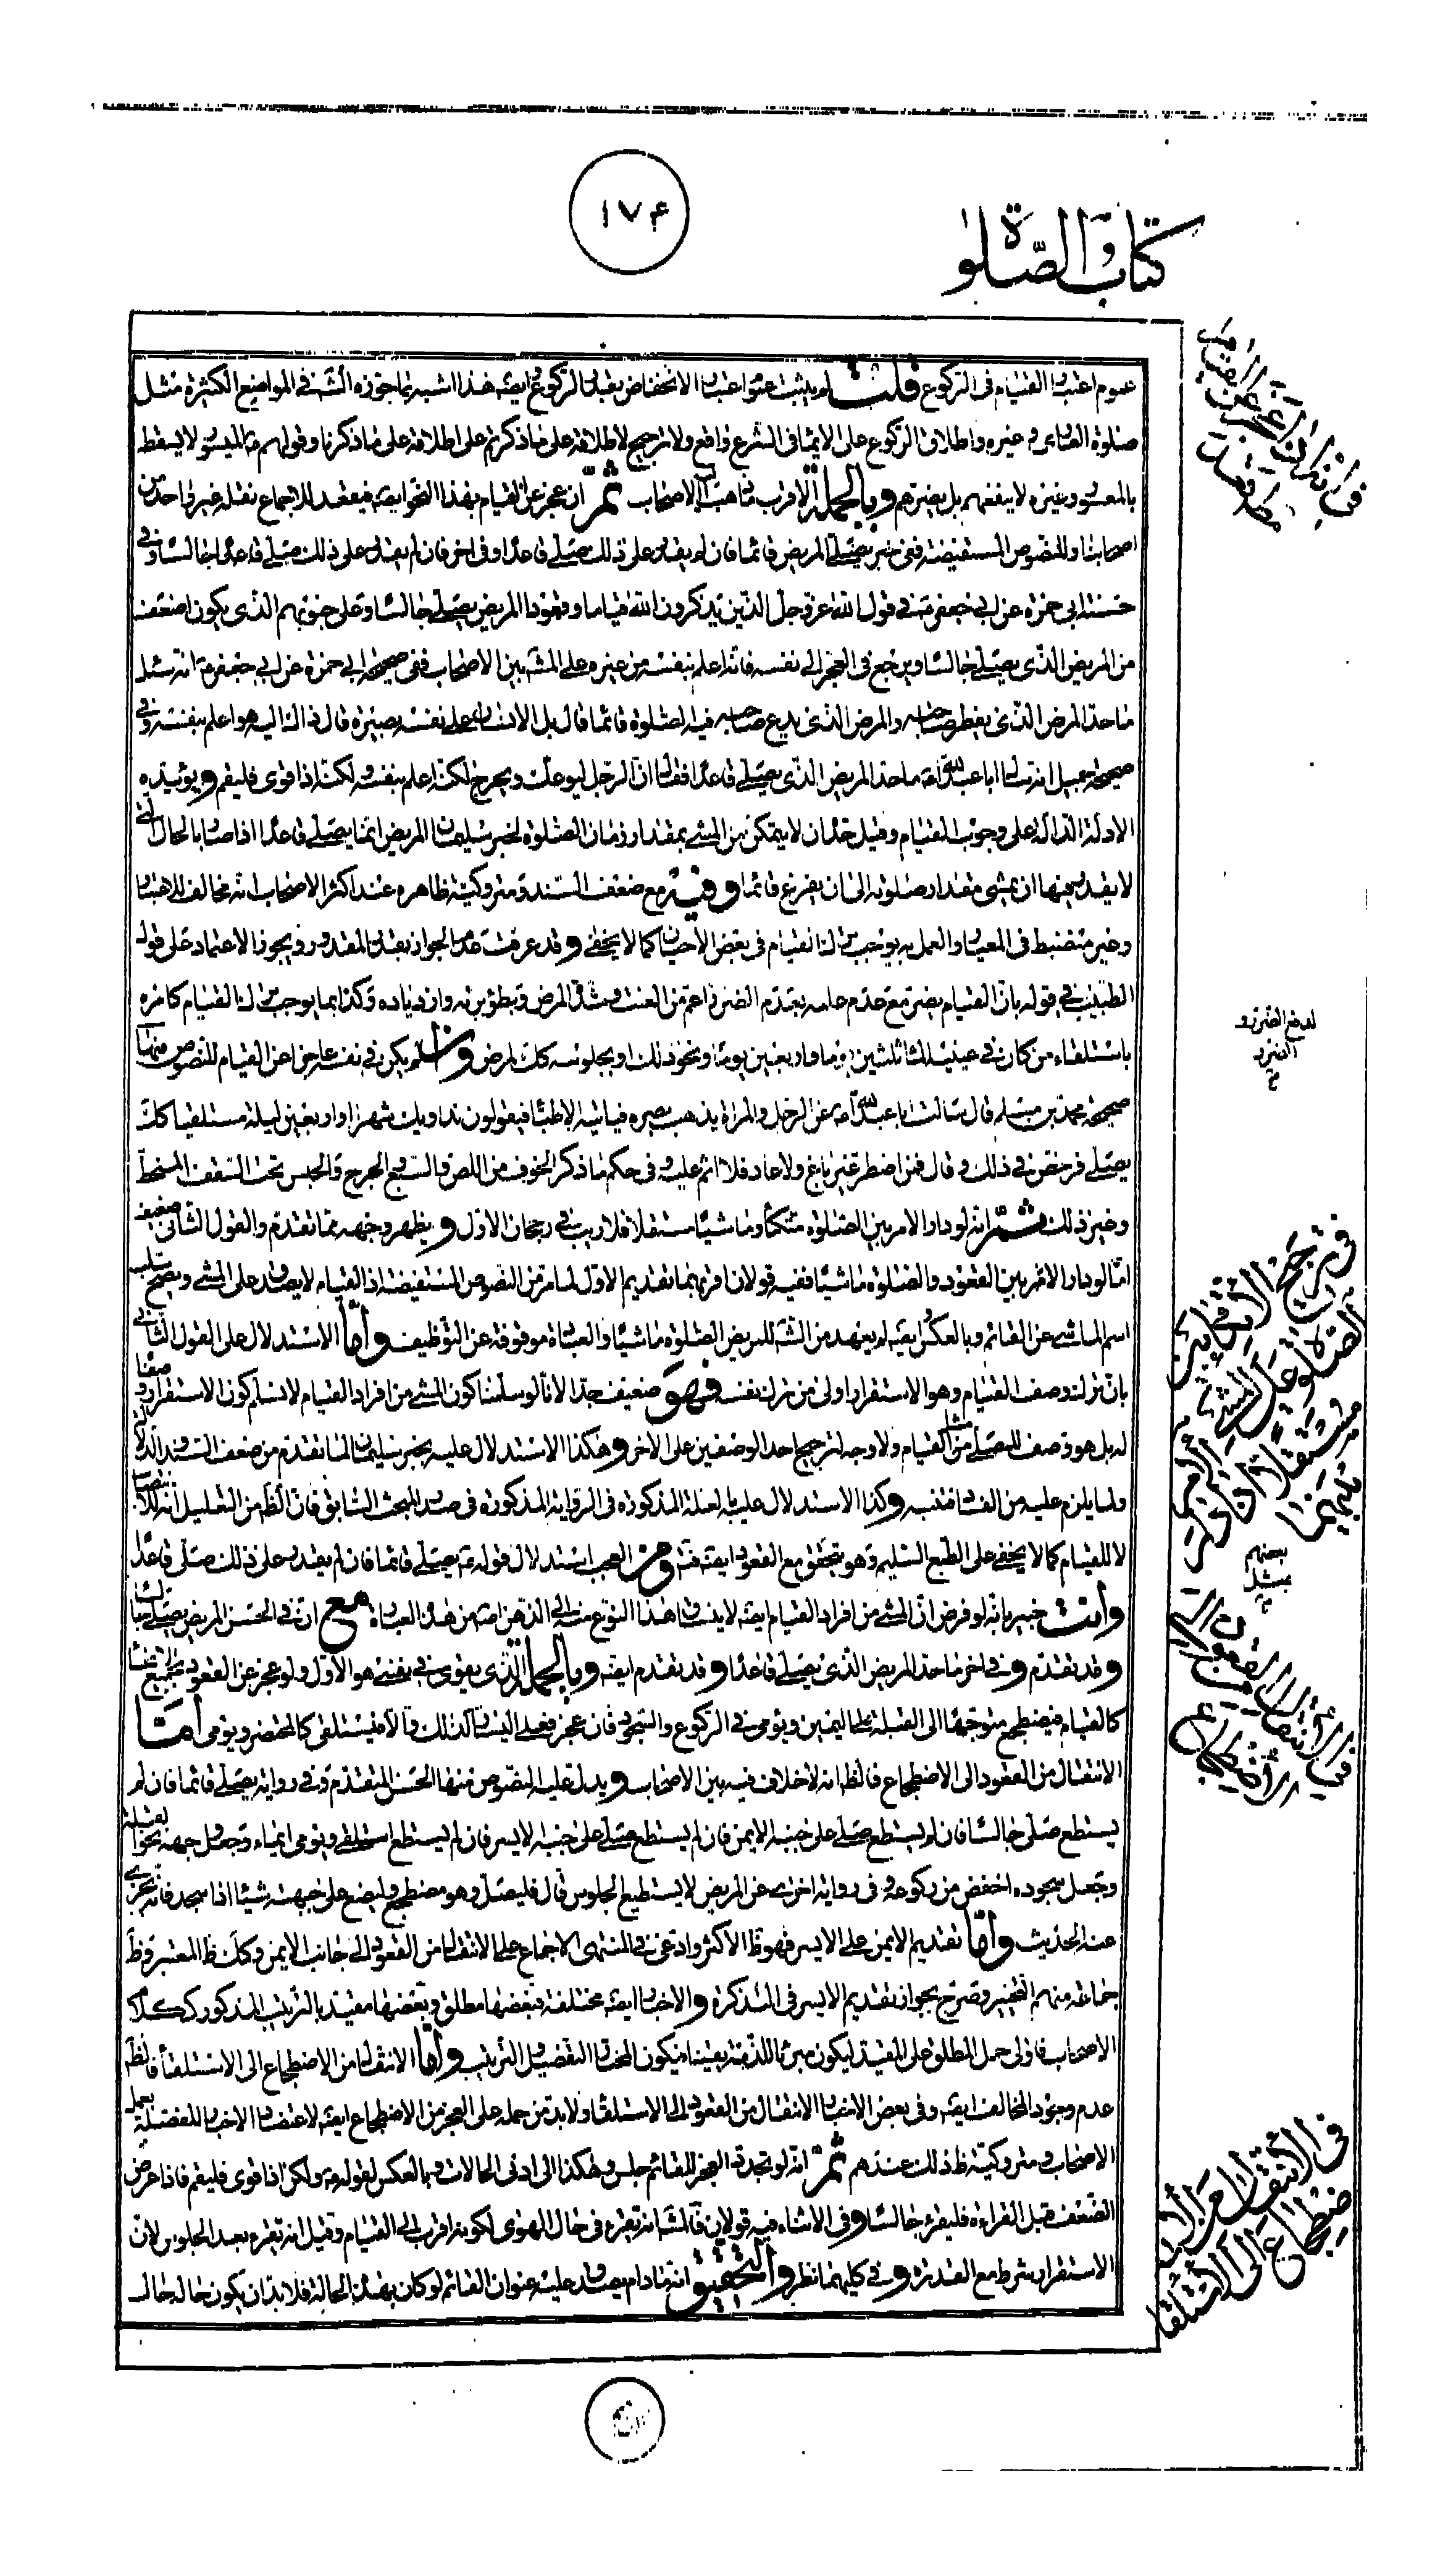 ١٧۴
كتاب الصلوة
عموم اعتبار القيام فى الركوع قلت لم يثبت عموم اعتبار الانخفاض بقدر الركوع ايضه هذا اشبه بما جوزه الشه فى المواضع الكثيرة مثل
صلوة العارى وغيره واطلاق الركوع على الايماء فى الشرع واقع ولا ترجيح لاطلاقه على ما ذكرتم على اطلاقه على ما ذكرنا وقولهم ع الميسور لا يسقط
بالمعسور وغيره لا ينفعهم بل يضرهم وبالجملة الاقرب ما ذهب اليه الاصحاب ثم ان عجز عن القيام بهذا النحو ايضه فيقعد للاجماع نقله غير واحد من
اصحابنا وللنصوص المستفيضة ففى خبر يصلى المريض قائما فان لم يقدر على ذلك صلى قاعدا وفى اخر فان لم يقدر على ذلك صلى قاعدا جالسا وفى
حسنة ابى حمزه عن ابى جعفر ع فى قول الله عز وجل الذين يذكرون الله قياما وقعودا المريض يصلى جالسا وعلى جنوبهم الذى يكون اضعف
من المريض الذى يصلى جالسا ويرجع فى العجز الى نفسه فانه اعلم بنفسه من غيره على المشه بين الاصحاب ففى صحيحة ابى حمزه عن ابى جعفر ع انه سئل
ما حد المرض الذى يفطر صاحبه والمرض الذى يدع صاحبه فيه الصلوة قائما قال بل الانسان على نفسه بصيرة قال ذاك اليه هو اعلم بنفسه وفى
صحيحة جميل انه سال ابا عبد الله ع ما حد المريض الذى يصلى قاعدا فقال ان الرجل ليوعك ويحرج لكنه اعلم بنفسه ولكنه اذا قوى فليقم ويؤيده
الادلة الدالة على وجوب القيام وقيل حد ان لا يتمكن من المشى بمقدار زمان الصلوة لخبر سليمان المريض انما يصلى قاعدا اذا صار بالحال التى
لا يقدر فيها ان يمشى مقدار صلوته الى ان يفرغ قائما وفيه مع ضعف السند ومتروكية ظاهره عند اكثر الاصحاب انه مخالف للاعتبار
وغير منضبط فى المعيار والعمل به يوجب ترك القيام فى بعض الاحيان كما لا يخفى وقد عرفت عدم الجواز بقدر المقدور ويجوز الاعتماد على قول
الطبيب فى قوله بان القيام يضر مع عدم علمه بعدم الضرر اعم من العنت وشدة المرض وبطؤ برئه وازدياده وكذا بما يوجب ترك القيام كامره
باستلقاء من كان فى عينيه الماء ثلثين يوما واربعين يوما ونحو ذلك او بجلوسه كك لمرض وان لم يكن فى نفسه عاجزا عن القيام للنصوص منها
صحيحة محمد بن مسلم قال سالت ابا عبد الله ع عن الرجل والمراة يذهب بصره فياتيه الاطباء فيقولون نداويك شهرا او اربعين ليلة مستلقيا كك
يصلى فرخص فى ذلك وقال فمن اضطر غير باغ ولا عاد فلا اثم عليه وفى حكم ما ذكر الخوف من اللص والسبع والجرح والحبس تحت السقف المنحط
وغير ذلك ثم انه لو دار الامر بين الصلوة متكئا وماشيا مستقلا فلا ريب فى رجحان الاول ويظهر وجهه مما تقدم والقول الثانى ضعيف
امّا لو دار الامر بين القعود والصلوة ماشيا ففيه قولان اقربهما تقديم الاول لما مر من النصوص المستفيضة اذ القيام لا يصدق على المشى ويصح سلب
اسم الماشى عن القائم وبالعكس ايضه لم يعهد من الشه للمريض الصلوة ماشيا والعبادة موقوفة عن التوظيف وامّا الاستدلال على القول الثانى
بان ترك وصف القيام وهو الاستقرار اولى من ترك نفسه فهو ضعيف جدا لانا لو سلمنا كون المشى من افراد القيام لا نسلم كون الاستقرار وصفا
له بل هو وصف للمصلى مثل القيام ولا وجه لترجيح احد الوصفين على الاخر وهكذا الاستدلال عليه بخبر سليمان لما تقدم من ضعف السند والدلالة
ولما يلزم عليه من الفساد فتنبه وكذا الاستدلال عليه بالعلة المذكورة فى الرواية المذكورة فى صدر المبحث السابق فان الظ من التعليل انه للانتصاب
لا للقيام كما لا يخفى على الطبع السليم وهو يتحقق مع القعود ايضه منه ومن العجب استدلال قوله ع يصلى قائما فان لم يقدر على ذلك صلى قاعدا
وانت خبير بانه لو فرض ان المشى من افراد القيام ايضه لا ينساق هذا النوع منه الى الذهن اصه من هذه العبارة مع ان فى الحسن المريض يصلى جالسا
وقد تقدم وفى اخر ما حد المريض الذى يصلى قاعدا وقد تقدم ايضه وبالجملة الذى يقوى فى نفسى هو الاول ولو عجز عن القعود بجميع انحائه
كالقيام فيضطجع متوجها الى القبلة على اليمين ويومى فى الركوع والسجود فان عجز فعلى اليسار كذلك والا فيستلقى كالمحتضر ويومى امّا
الانتقال من القعود الى الاضطجاع فالظ انه لا خلاف فيه بين الاصحاب ويدل عليه النصوص منها الحسن المتقدم وفى رواية يصلى قائما فان لم
يستطع صلى جالسا فان لم يستطع صلى على جنبه الايمن فان لم يستطع صلى على جنبه الايسر فان لم يستطع استلقى ويومى ايماء وجعل وجهه نحو القبلة
وجعل سجوده اخفض من ركوعه وفى رواية اخرى عن المريض لا يستطيع الجلوس قال فليصل وهو مضطجع وليضع على جبهته شيئا اذا سجد فانه يجزى
عنه الحديث وامّا تقديم الايمن على الايسر فهو ظ الاكثر وادعى فى المنتهى الاجماع على الانتقال من القعود الى جانب الايمن وكك ظ المعتبر وظ
جماعة منهم التخيير وصرح بجواز تقديم الايسر فى التذكرة والاخبار ايضه مختلفة فبعضها مطلق وبعضها مقيد بالترتيب المذكور ككلام
الاصحاب فاولى حمل المطلق على المقيد ليكون مبرئا للذمة يقينا فيكون المختار التفصيل والترتيب وامّا الانتقال من الاضطجاع الى الاستلقاء فالظ
عدم وجود المخالف ايضه وفى بعض الاخبار الانتقال من القعود الى الاستلقاء ولا بد من حمله على العجز من الاضطجاع ايضه لاعتضاد الاخبار المفصلة بعمل
الاصحاب ومتروكية ظ ذلك عندهم ثم انه لو تجدد العجز للقائم جلس وهكذا الى ادنى الحالات وبالعكس لقوله ع ولكن اذا قوى فليقم فاذا عرض
الضعف قبل القراءة فليقرء جالسا وفى الاثناء فيه قولان فالمشه انه يقرء فى حال الهوى لكونه اقرب الى القيام وقيل انه يقرء بعد الجلوس لان
الاستقرار شرط مع القدرة وفى كليهما نظر والتحقيق انه ما دام يصدق عليه عنوان القائم لو كان بهذه الحالة فلا بد ان يكون حاله حال
لدفع الضرر و
الضرر
بعضهم
مثل
فى الانتقال من الا
ضطجاع الى الاستلقاء